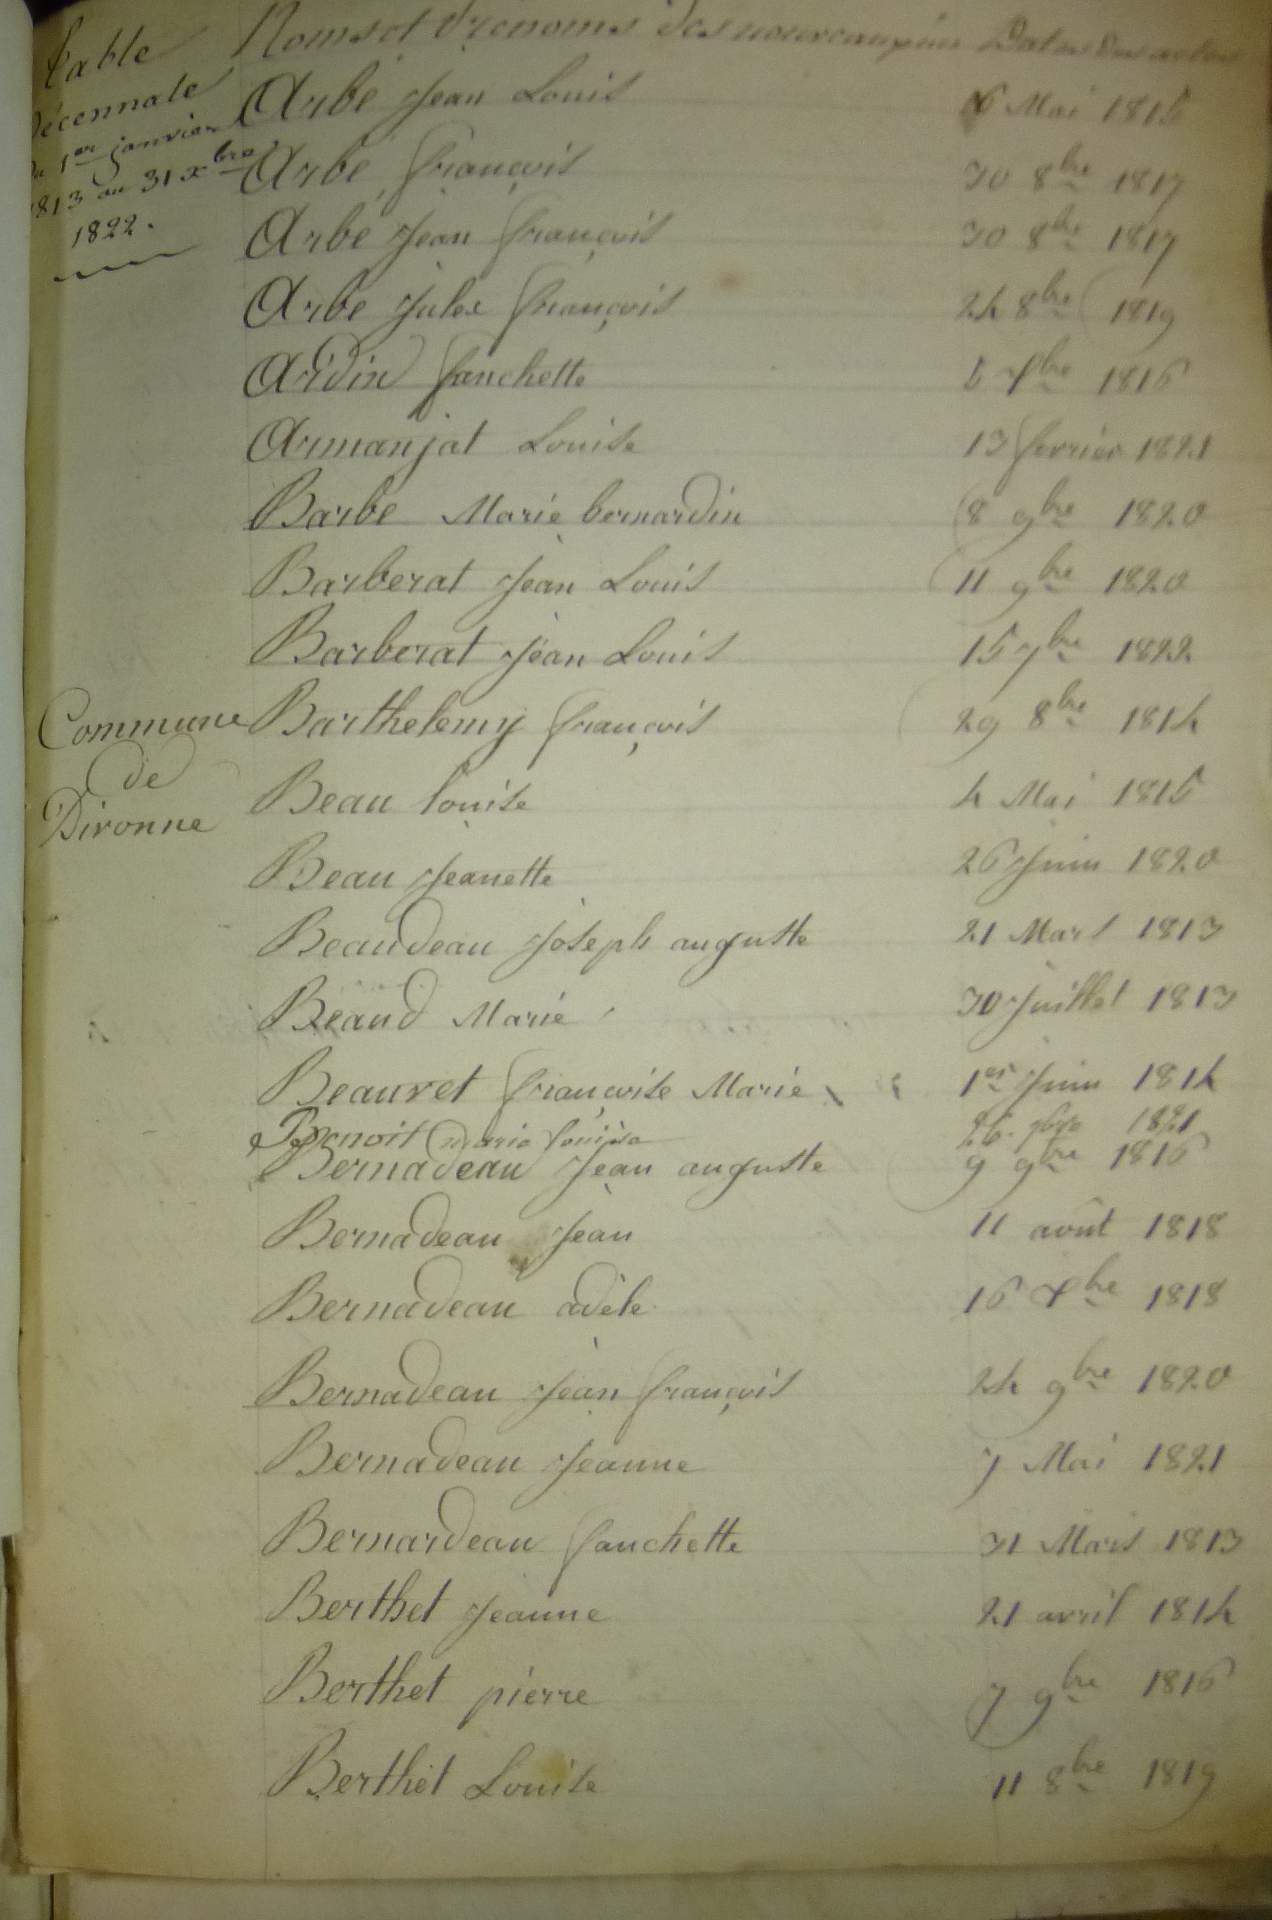 Table
Décennale
Du 1er janvier
1813 au 31 xbre
1822.
Commune
de
Divonne
Noms et Prénoms des nouveaux nés Dates des actes
Arbé Jean Louis 6 Mai 1815
Arbé françois 30 8bre 1817
Arbé Jean françois 30 8bre 1817
Arbé Jules françois 24 8bre 1819
Ardin fanchette 5 xbre 1816
Armanjat Louise 13 fevrier 1821
Barbe Marie bernardin 8 9bre 1820
Barberat Jean Louis 11 9bre 1820
Barberat Jean Louis 15 7bre 1822
Barthelemy françois 29 8bre 1814
Beau Louise 4 Mai 1815
Beau Jeanette 26 Juin 1820
Beaudeau Joseph auguste 21 Mars 1813
Beaud Marie 30 Juillet 1813
Beauvet françoise Marie 1er Juin 1814
Benoit marie louise 26 1821
Bernadeau Jean auguste 9 9bre 1816
Bernadeau Jean 11 août 1818
Bernadeau adèle 16 xbre 1818
Bernadeau Jean françois 24 9bre 1820
Bernadeau Jeanne 7 Mai 1821
Bernardeau fanchette 31 Mars 1813
Berthet Jeanne 21 avril 1814
Berthet pierre 7 9bre 1816
Berthet Louise 11 8bre 1819